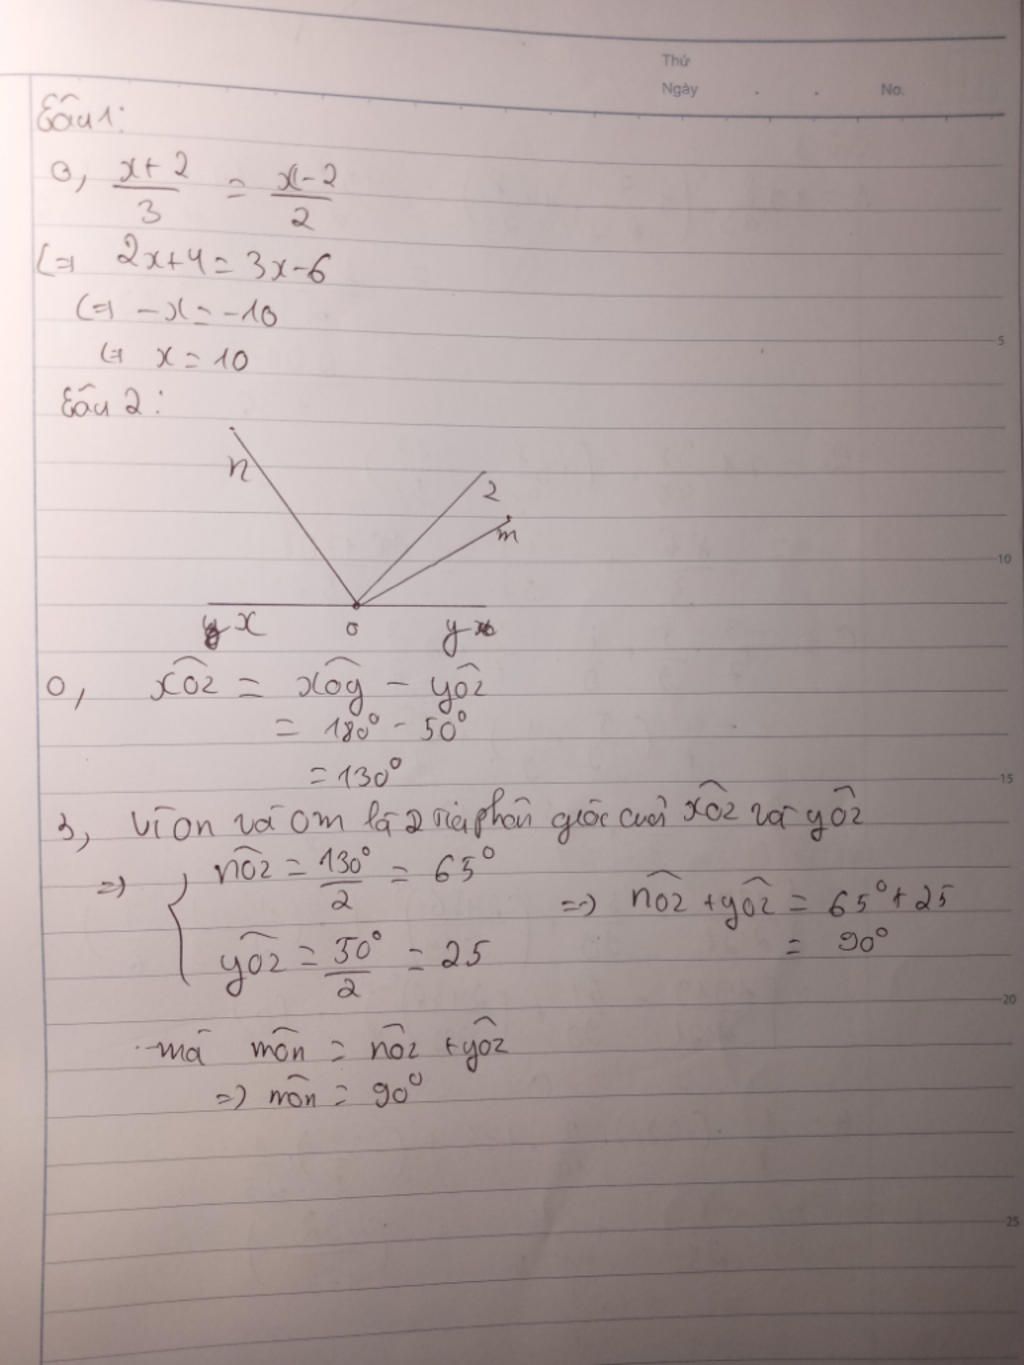 Thứ
Ngày . . No.
Câu 1:
a, x+2/3 = x-2/2
<=> 2x+4 = 3x-6
<=> -x = -10
<=> x = 10
Câu 2:
n
z
m
x o y
a, xôz = xôy - yôz
= 180° - 50°
= 130°
b, Vì on và om là 2 tia phân giác của xôz và yôz
=> { nôz = 130°/2 = 65°
yôz = 50°/2 = 25
=> nôz + yôz = 65° + 25
= 90°
mà môn = nôz + yôz
=> môn = 90°
5
10
15
20
25